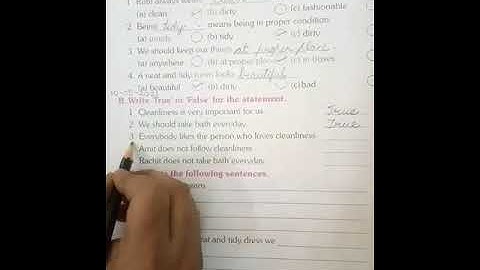 1. Rohi always wears
(a) clean (b) dirty (c) fashionable
2. Being tidy - means being in proper condition.
(a) untidy (b) tidy (c) dirty
3. We should keep our things at proper place.
(a) anywhere (b) at proper place (c) in
4. A neat and tidy room looks beautiful
(a) beautiful (b) dirty (c) bad
B. Write 'True' or 'False' for the statement.
1. Cleanliness is very important for us. True
2. We should take bath everyday. True
3. Everybody likes the person who loves cleanliness.
Amit does not follow cleanliness.
Rachit does not take bath everyday.
the following sentences.
at and tidy dress we